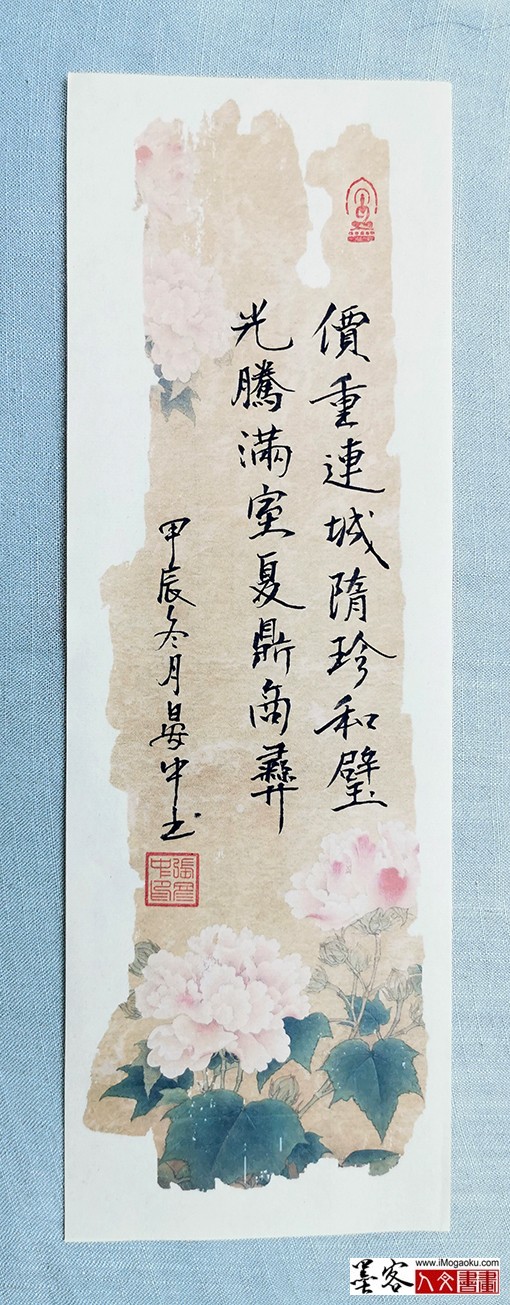 價重連城隋珍和璧
光騰滿室夏鼎商彝
甲辰冬月晏中书
www.iMogaoku.com
墨客
人文書畫